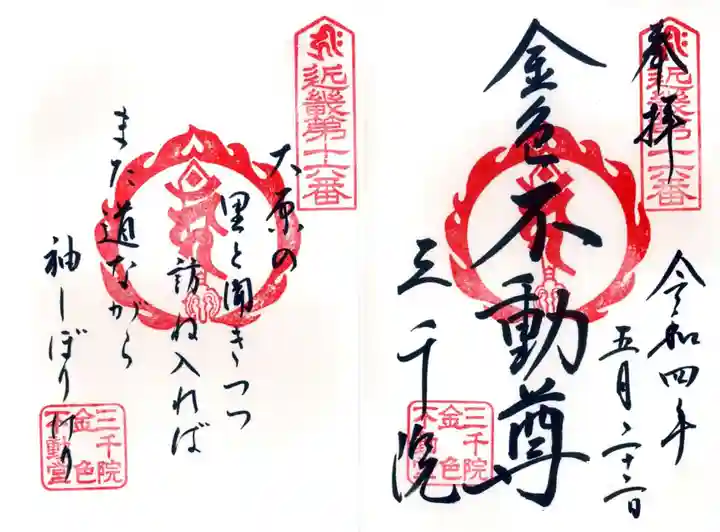 奉拝
近畿第十六番
金色不動尊
三千院
令和四年
五月二十二日
三千院
金色
不動堂
近畿第十六番
大原の
里と聞きつつ
訪ね入れば
また道ながら
袖しぼりけり
三千院
金色
不動堂